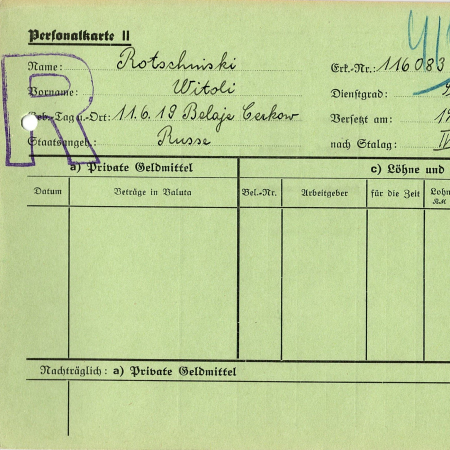 Personalkarte II
Name: Rotschinski Erk.-Nr.: 116083
Vorname: Witoli Dienstgrad:
Geb.-Tag u. -Ort: 11.6.19 Belaje Cerkow Versetzt am: 19
Staatsangeh.: Russe nach Stalag: IV
R
a) Private Geldmittel c) Löhne und
Datum Beträge in Valuta Bel.-Nr. Arbeitgeber für die Zeit Lohn
RM
Nachträglich: a) Private Geldmittel